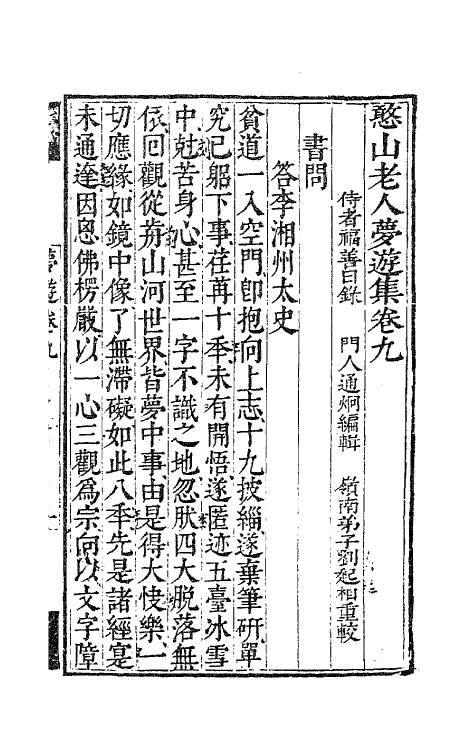 憨山老人夢遊集卷九
侍者福善日錄　門人通炯編輯　嶺南弟子劉起相重較
書問
答李湘州太史
貧道一入空門卽抱向上志十九披緇遂棄筆研單
究己躬下事荏苒十季未有開悟遂匿迹五臺冰雪
中尅苦身心甚至一字不識之地忽肰四大脫落無
依回觀從前山河世界皆夢中事由是得大快樂一
切應緣如鏡中像了無滯礙如此八季先是諸經寔
未通達因思佛楞嚴以一心三觀爲宗向以文字障
夢遊卷九